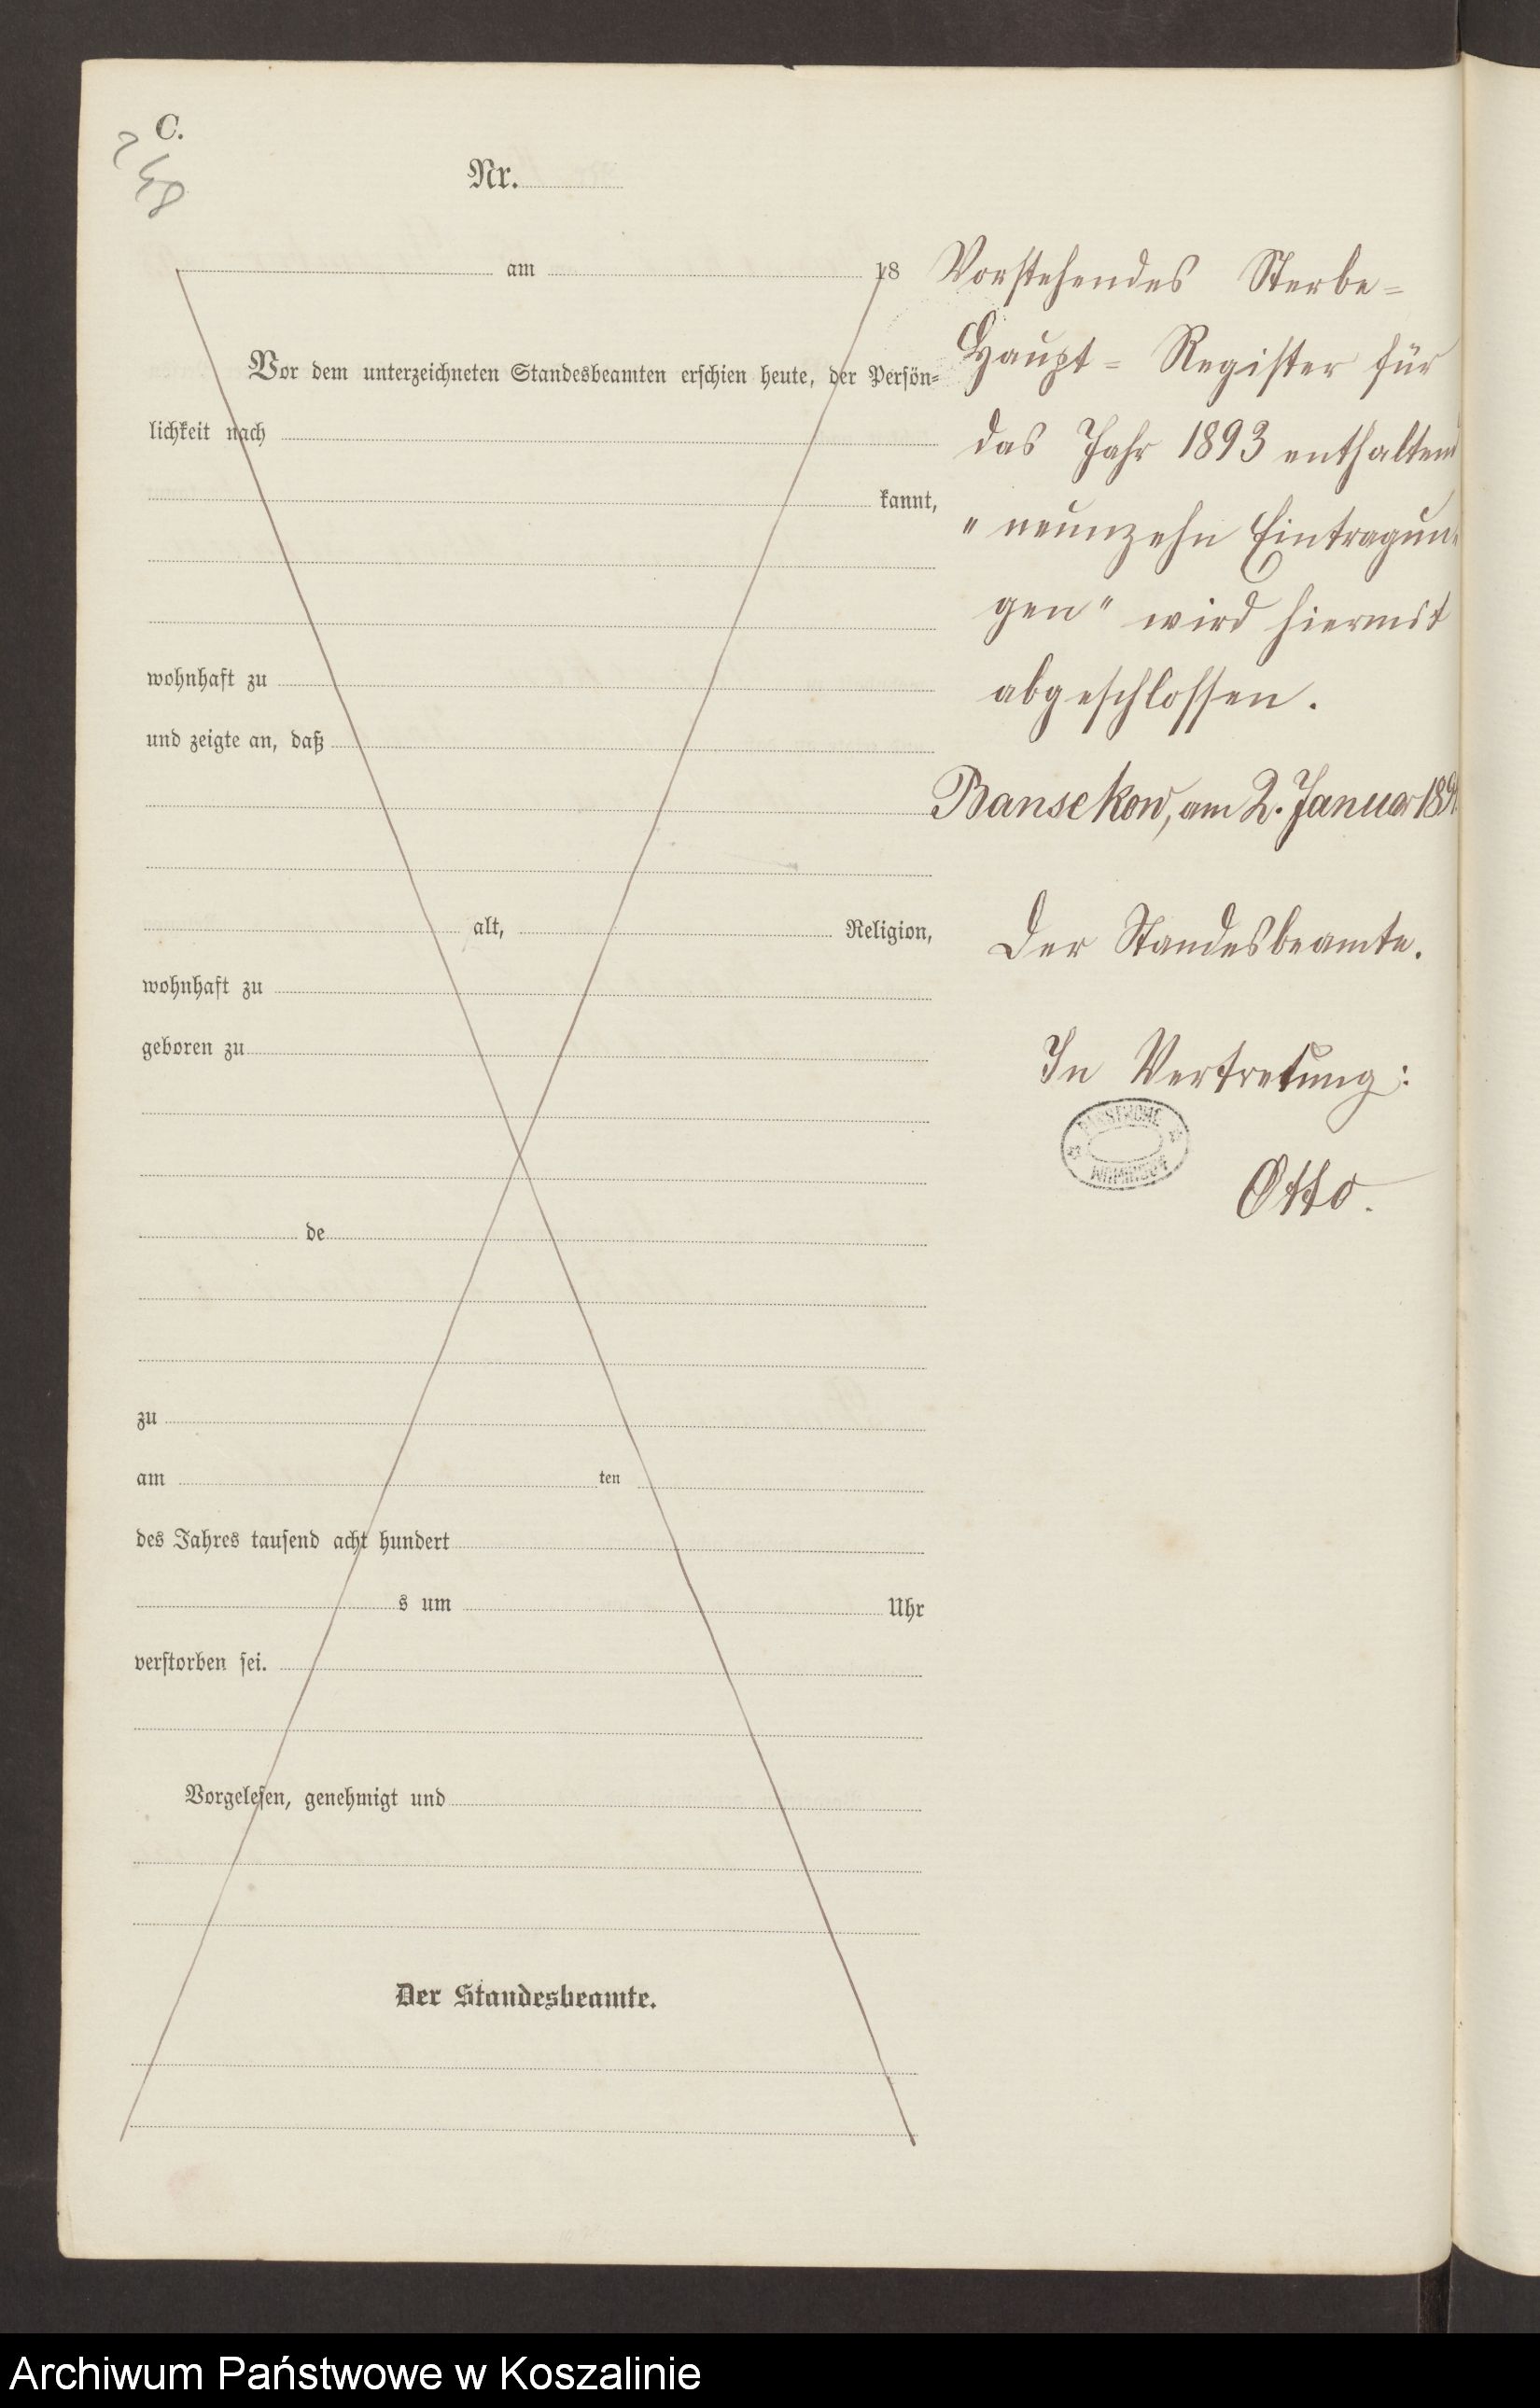 C.
Nr.
am 18
Vor dem unterzeichneten Standesbeamten erschien heute, der Persön-
lichkeit nach
kannt,
wohnhaft zu
und zeigte an, daß
alt, Religion,
wohnhaft zu
geboren zu
de
zu
am ten
des Jahres tausend acht hundert
s um Uhr
verstorben sei.
Vorgelesen, genehmigt und
Der Standesbeamte.
Vorstehendes Sterbe=
Haupt=Register für
das Jahr 1893 enthaltend
"neunzehn Eintragun-
gen" wird hiermit
abgeschlossen.
Bansekow, am 2. Januar
Der Standesbeamte.
In Vertretung:
Otto.
Archiwum Państwowe w Koszalinie